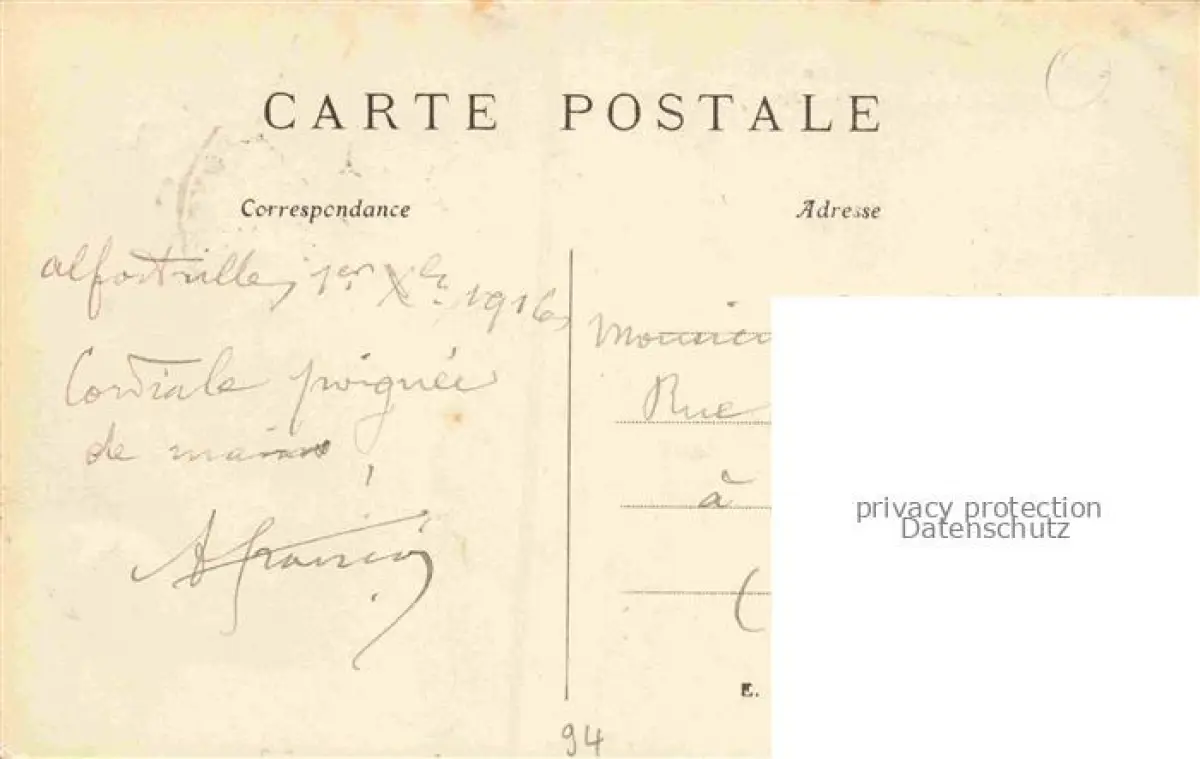 CARTE POSTALE
Correspondance
Adresse
alfortville, 1er Xbre 1916,
Cordiale poignée
de main
Monsieur
Rue
à
(
E.
94
privacy protection
Datenschutz